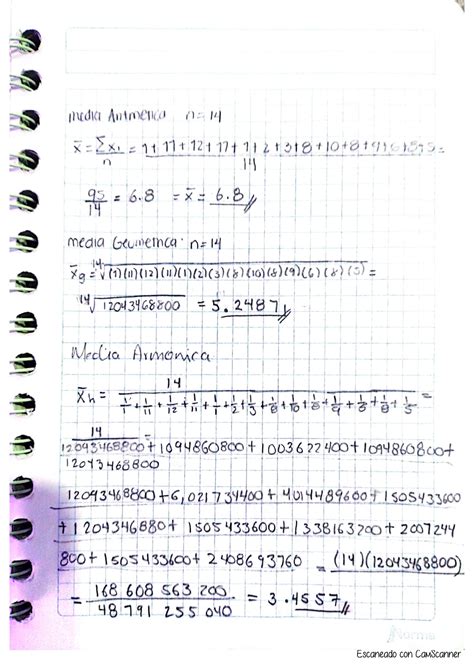 media Aritmetica n=14
x̄ = Σxi/n = 1+11+12+11+1+2+3+8+10+8+9+6+8+5 =
14
95/14 = 6.8 = x̄ = 6.8
media Geometrica: n=14
x̄g = 14√(1)(11)(12)(11)(1)(2)(3)(8)(10)(8)(9)(6)(8)(5) =
14√12043468800 = 5.2487
Media Armonica
14
x̄h = 1/1+1/11+1/12+1/11+1/1+1/2+1/3+1/8+1/10+1/8+1/9+1/6+1/8+1/5 =
14 =
12043468800+1094860800+1003622400+1094860800+
12043468800
12043468800+6,021734400+4014489600+1505433600
+1204346880+1505433600+1338163200+2007244
800+1505433600+2408693760 = (14)(12043468800)
= 168 608 563 200 / 48 791 255 040 = 3.4557
Norma
Escaneado con CamScanner